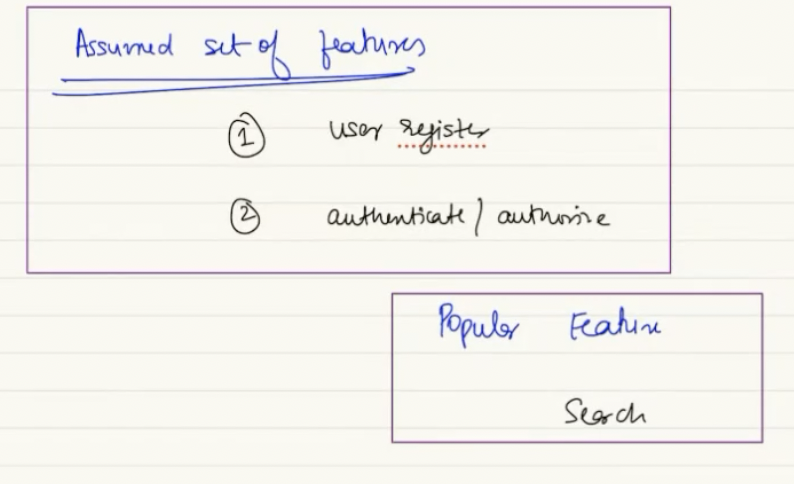 Assumed set of features
1 user register
2 authenticate / authorize
Popular Feature
Search